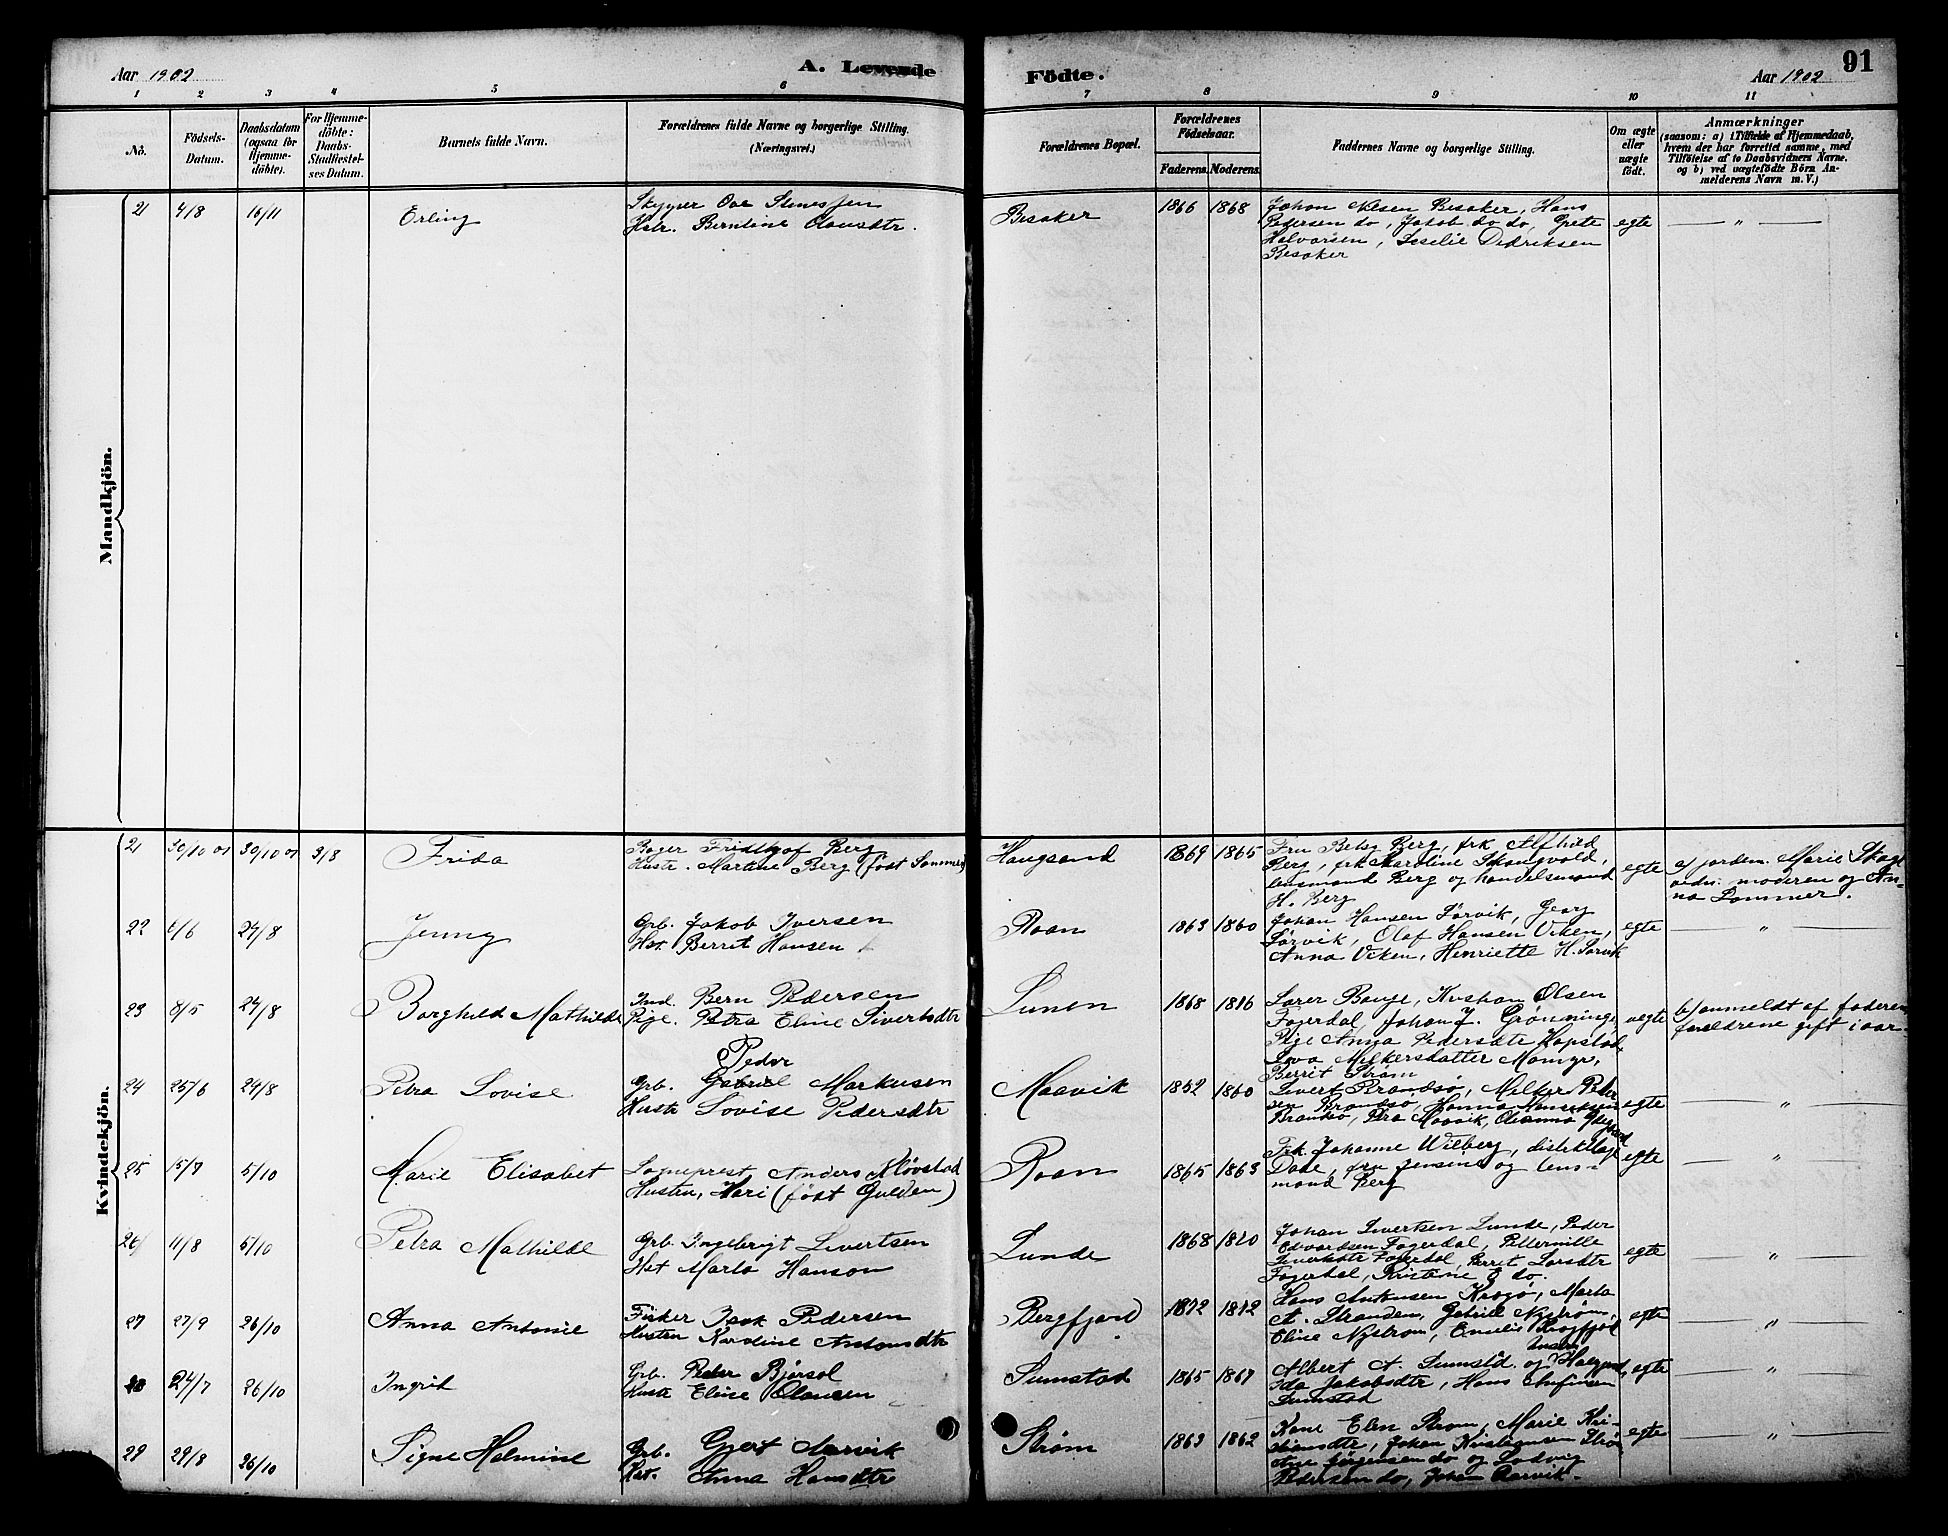 Aar 1902
A. Levende
Födte.
Aar 1902
91
1 2 3 4 5 6 7 8 9 10 11
Nô.
Födsels-Datum.
Daabsdatum (ogsaa for Hjemme-döbte).
For Hjemme-döbte: Daabs-Stadfæstel-ses Datum.
Barnets fulde Navn.
Forældrenes fulde Navne og borgerlige Stilling.
(Næringsvei.)
Forældrenes Bopæl.
Forældrenes Födselsaar.
Faderens. Moderens.
Faddernes Navne og borgerlige Stilling.
Om ægte eller uægte födt.
Anmærkninger
(saasom: a) i Tilfælde af Hjemmedaab,
hvem der har forrettet samme, med
Tilföielse af to Daabsvidners Navne,
og b) ved uægtefödte Börn An-
melderens Navn m. V.)
Mandkjön.
21 4/8 16/11 Erling
Skypper Ove
Hstr. Berntine Olausdtr.
Besaker 1866 1868
Johan Besaker, Hans
Pedersen do, Jakob do do, Grete
Halvorsen, Didriksen
Besaker
egte — " —
Kvindekjön.
21 30/10 01 30/10 01 3/8 Frida
Bager Fridtjof Berg
Hustr. Martine Berg (födt Sommer)
Haugsand 1869 1865
Fru Betsy Berg, frk Alfhild
Berg, frk Karoline Skangvold,
lensmand Berg og handelsmand
H. Berg
egte
a) jordm. Marie
moderen og An-
na Sommer.
22 6/6 24/8 Jenny
Grb. Jakob Iversen
Hst. Berrit Hansen
Roan 1863 1860
Johan Hansen Sørvik, Georg
Sørvik, Olaf Hansen Viken,
Anna Viken, Henriette H. Sørvik
egte — " —
23 8/5 24/8 Borghild Mathilde
Ind. Bern Pedersen
Pige. Petra Eline Sivertsdtr
1868
Olsen
Fagerdal, Johan J. Grønning,
Pige Anna Pedersdtr Hopstad,
Berrit Strøm
uegte
b) anmeldt af faderen
forældrene gift i aar.
24 25/6 24/8 Petra Lovise
Peder
Grb. Gabriel Markusen
Hustr Lovise Pedersdtr
Maavik 1852 1860
Sivert Brandsø, Melker Peder
sen Brandsø, Hanna
Brandsø, Petra Maavik, Oleanna
egte — " —
25 15/7 5/10 Marie Elisabet
Sogneprest Anders Kløvstad
Hustru, Mari (født Gulden)
Roan 1865 1863
Frk. Johanne Wilberg, distriktlæge
Dahe, fru Jensine og lens-
mand Berg
egte — " —
26 11/8 5/10 Petra Mathilde
Grb. Ingebrigt Sivertsen
Hst Marta Hanson
Lunde 1868
Johan Sivertsen Lunde, Peder
Edvardsen Fagerdal, Petternille
Sivertsdtr Fagerdal, Berret Larsdtr
Fagerdal, Kristine E do.
egte — " —
27 27/9 26/10 Anna Antonie
Fisker Isak Pedersen
Hustru Karoline Antonsdtr
Bergfjord 1872 1872
Hans Antonsen Kragø, Marta
A. Stranden, Gabriel Nystrøm,
Elise Nystrøm,
egte — " —
28 24/7 26/10 Ingrid
Grb. Peder Bjørsol
Hustr Elise Olausen
Sumstad 1865 1867
Albert A. Sumstd. og
Ida Jakobsdtr, Hans
Sumstad
egte — " —
29 29/8 26/10 Signe Helmine
Grb. Gjert Aarvik
Hst. Anna Hansdtr
Strøm 1863 1862
Kone Elen Strøm, Marie Kri-
stiansdtr, Johan Kristiansen Strøm
Ane Jørgensen do og Ludvig
Pedersen do, Johan Aarvik.
egte — " —